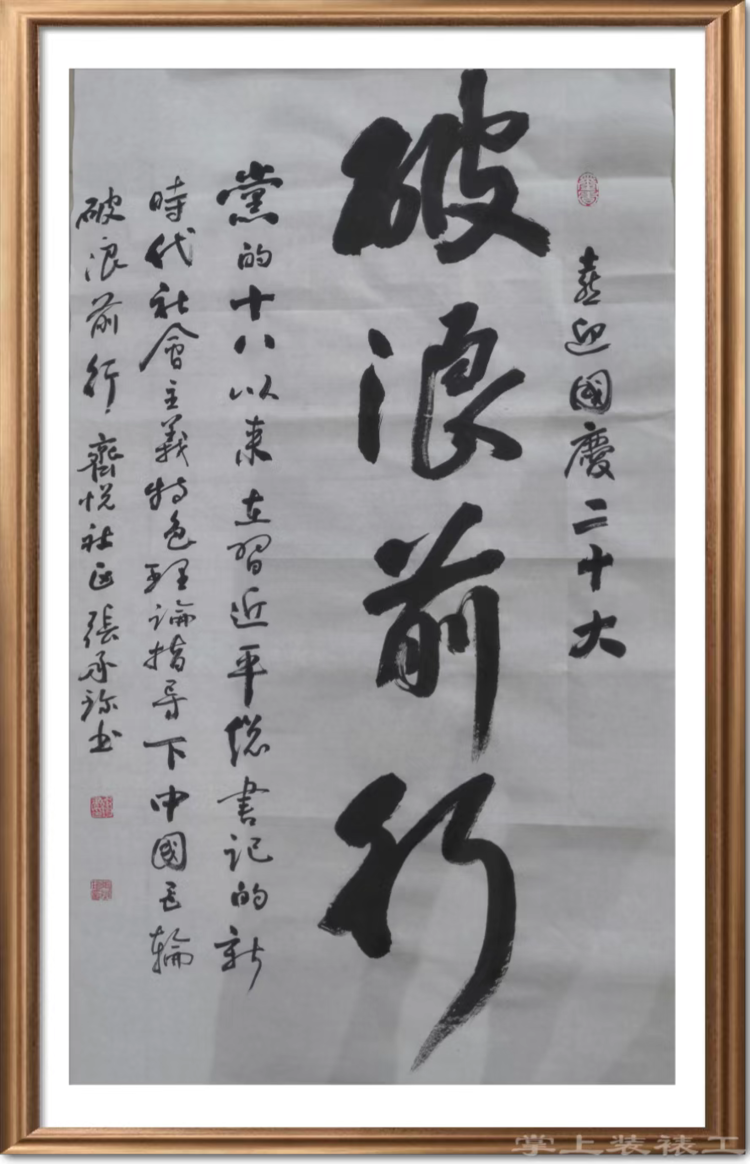 喜迎國慶二十大
破浪前行
黨的十八以来在習近平總書记的新
時代社會主義特色理論指导下中國巨輪
破浪前行，齊悦社区張承弥书
掌上装裱工